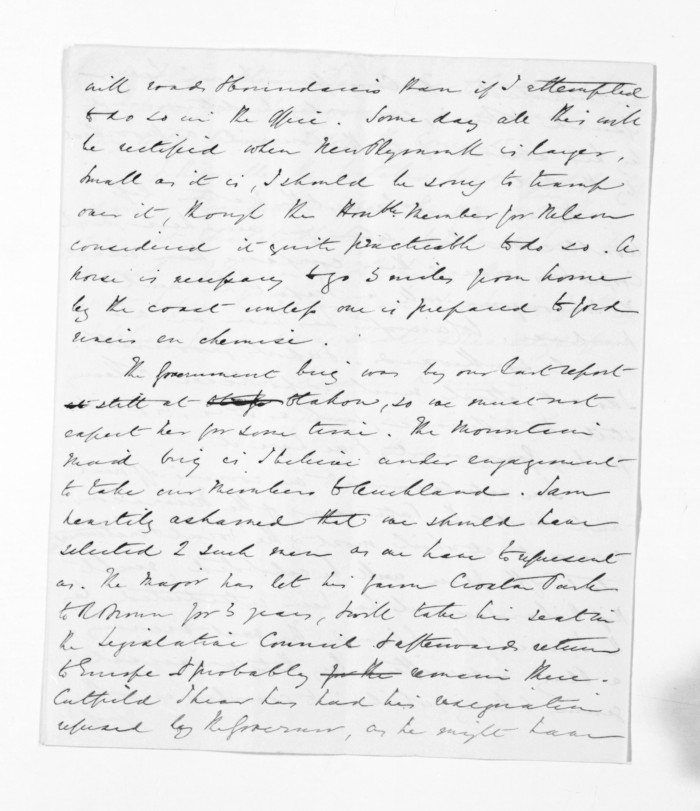 with roads & boundaries than if I attempted
to do so in the Office. Some day all this will
be rectified when New Plymouth is larger,
small as it is, I should be sorry to tramp
over it, though the Honble Member for Nelson
considered it quite practicable to do so. A
horse is necessary to go 3 miles from home
by the coast unless one is prepared to ford
rivers en chemise.
The Government brig was by our last report
still at Otahou, so we must not
expect her for some time. The Mountain
Maid brig is I believe under engagement
to take our Members to Auckland. I am
heartily ashamed that we should have
selected 2 such men as we have to represent
us. The Major has let his farm Park
to R Brown for 3 years, & will take his seat in
the Legislative Council & afterwards return
to Europe & probably remain there.
Cutfield I hear has had his resignation
refused by the Governor, as he might have